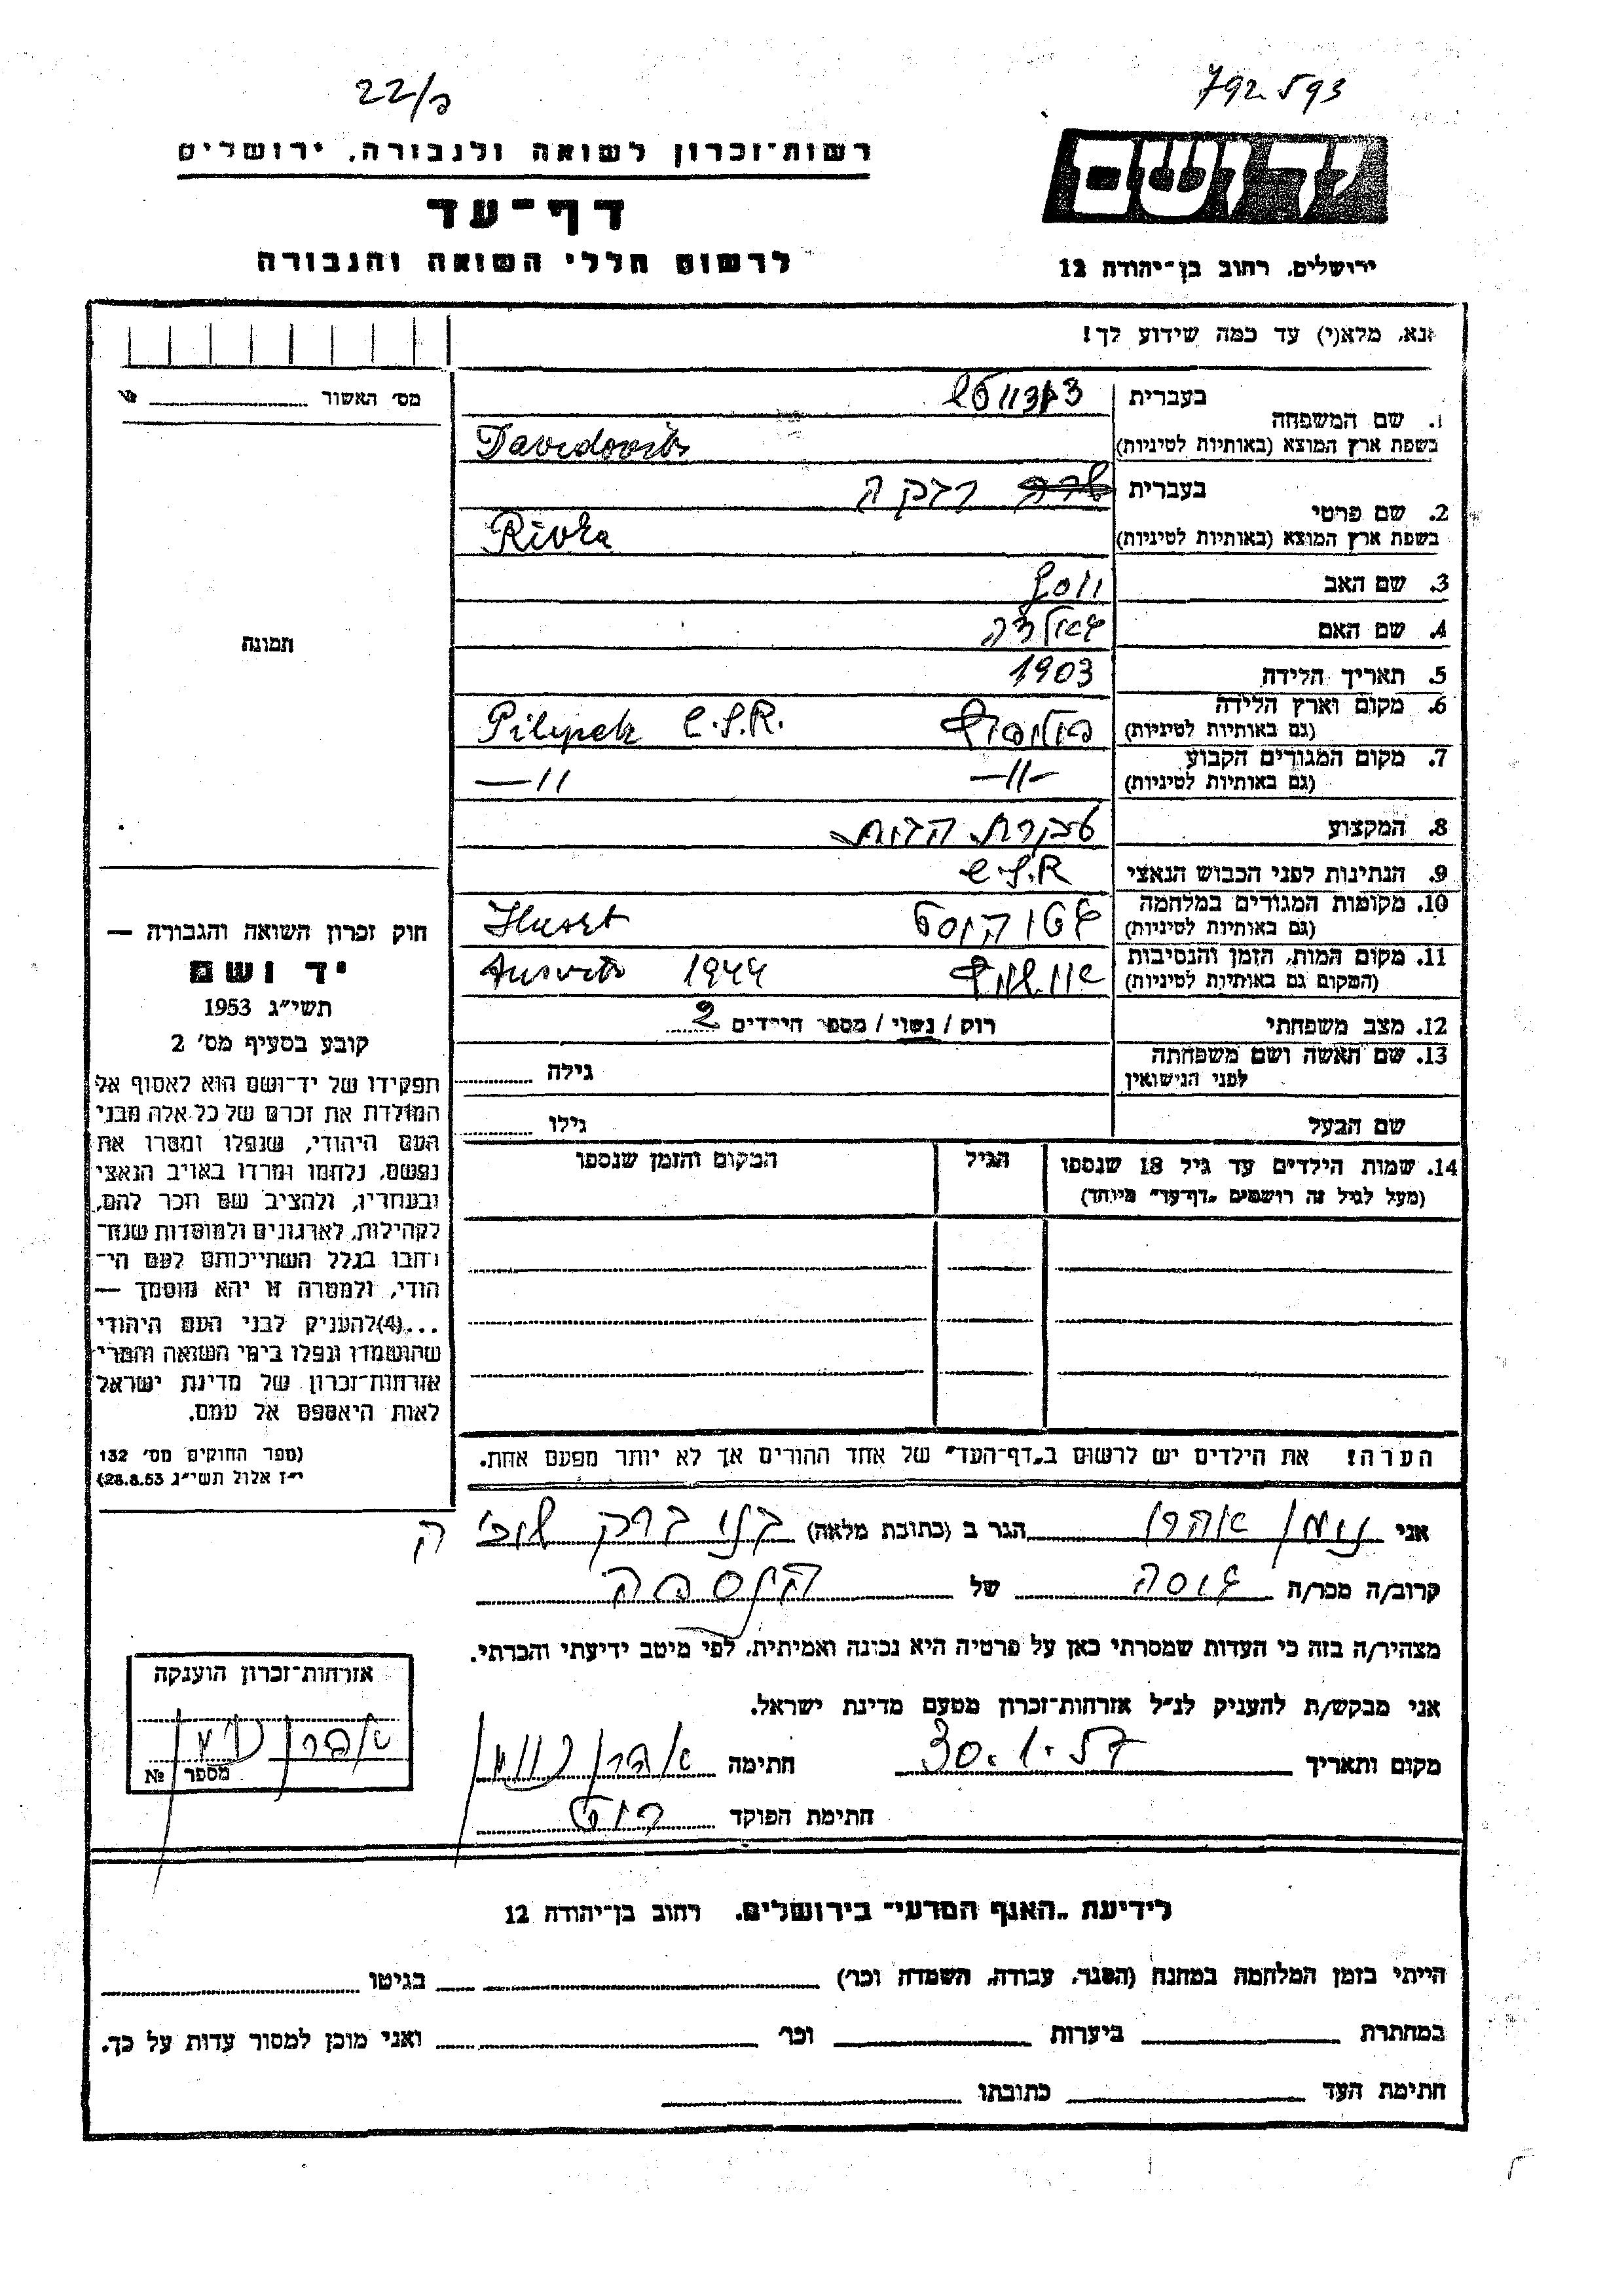 22/ד
792.593
רשות־זכרון לשואה ולגבורה, ירושלים
יד ושם
דף־עד
לרשום חללי השואה והגבורה
ירושלים, רחוב בן־יהודה 12
אנא, מלא(י) עד כמה שידוע לך!
מס׳ האשור №
1. שם המשפחה
בעברית
בשפת ארץ המוצא (באותיות לטיניות) Davidovits
2. שם פרטי
בעברית רבקה
בשפת ארץ המוצא (באותיות לטיניות) Rivka
3. שם האב יוסף
4. שם האם
5. תאריך הלידה 1903
6. מקום וארץ הלידה Pilipek C.S.R.
(גם באותיות לטיניות)
7. מקום המגורים הקבוע —11— —11
(גם באותיות לטיניות)
8. המקצוע עקרת הבית
9. הנתינות לפני הכבוש הנאצי C.S.R
10. מקומות המגורים במלחמה גטו הוסט Husst
(גם באותיות לטיניות)
11. מקום המות, הזמן והנסיבות 1944
(המקום גם באותיות לטיניות)
12. מצב משפחתי רווק / נשוי / מספר הילדים 2
13. שם האשה ושם משפחתה גילה
לפני הנישואין
שם הבעל גילו
14. שמות הילדים עד גיל 18 שנספו הגיל המקום והזמן שנספו
(מעל לגיל זה רושמים „דף־עד״ מיוחד)
הערה! את הילדים יש לרשום ב„דף־העד״ של אחד ההורים אך לא יותר מפעם אחת.
תמונה
חוק זכרון השואה והגבורה —
יד ושם
תשי״ג 1953
קובע בסעיף מס׳ 2
תפקידו של יד־ושם הוא לאסוף אל
המולדת את זכרם של כל אלה מבני
העם היהודי, שנפלו ומסרו את
נפשם, נלחמו ומרדו באויב הנאצי
ובעוזריו, ולהציב שם וזכר להם,
לקהילות, לארגונים ולמוסדות שנח־
רבו בגלל השתייכותם לעם הי־
הודי, ולמטרה זו יהא מוסמך —
...(4)להעניק לבני העם היהודי
שהושמדו ונפלו בימי השואה והמרי
אזרחות־זכרון של מדינת ישראל
לאות היאספם אל עמם.
(ספר החוקים מס׳ 132
י״ז אלול תשי״ג 28.8.53)
אני נוימן אהרן הגר ב (כתובת מלאה) בני ברק
קרוב/ה מכר/ה של
מצהיר/ה בזה כי העדות שמסרתי כאן על פרטיה היא נכונה ואמיתית, לפי מיטב ידיעתי והכרתי.
אני מבקש/ת להעניק לנ״ל אזרחות־זכרון מטעם מדינת ישראל.
מקום ותאריך 30.1.57 חתימה אהרן נוימן
חתימת הפוקד
אזרחות־זכרון הוענקה
אהרן נוימן
מספר №
לידיעת „האגף המדעי״ בירושלים, רחוב בן־יהודה 12
הייתי בזמן המלחמה במחנה (הסגר, עבודה, השמדה וכו׳) בגיטו
במחתרת ביערות וכו׳ ואני מוכן למסור עדות על כך.
חתימת העד כתובתו